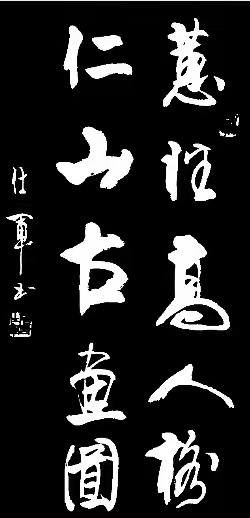 蕙性高人格
仁山古畫圖
仕軍书